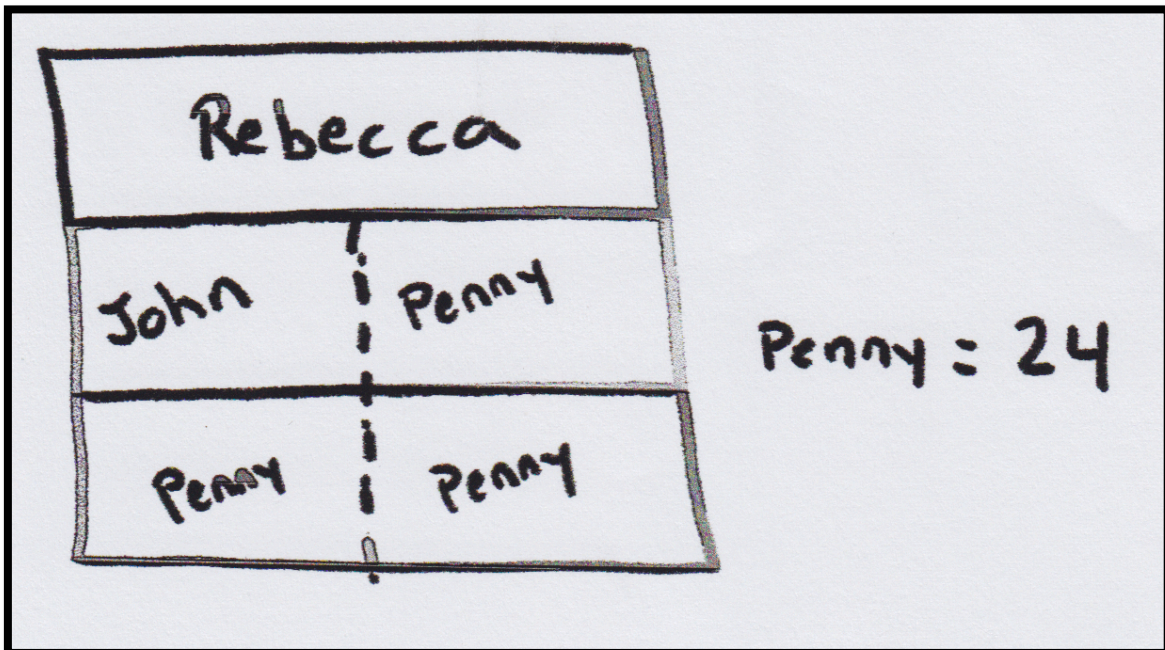 Rebecca
John Penny
Penny = 24
Penny Penny